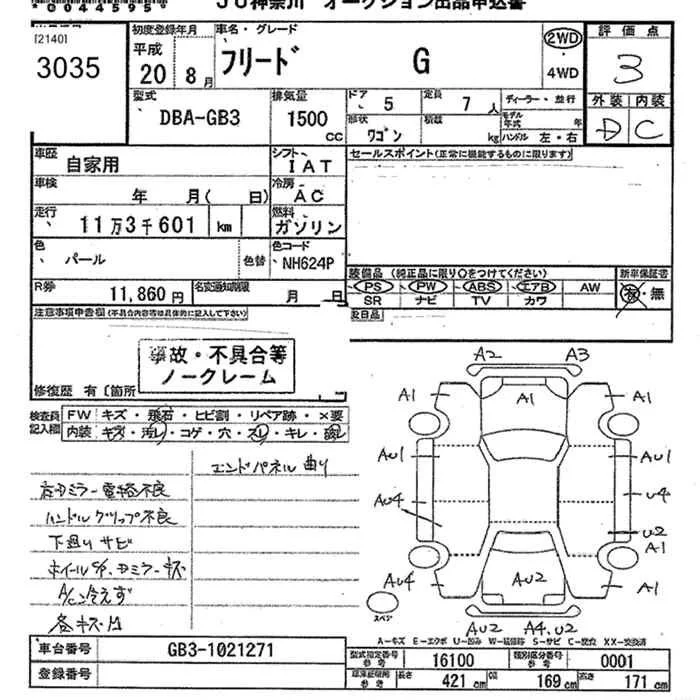 *0044595*
JU神奈川 オークション出品申込書
[2140]
3035
初度登録年月
平成
20 8月
車名・グレード
フリード G
2WD
・
4WD
評価点
3
外装 内装
D C
型式
DBA-GB3
排気量
1500 cc
ドア
5
定員
7 人
形状
ワゴン
積載
kg
ディーラー・並行
モデル年式 年
ハンドル 左・右
車歴
自家用
シフト
IAT
セールスポイント(正常に機能するものに限ります)
車検
年 月( 日)
冷房
AC
走行
11万3千601 km
燃料
ガソリン
色
パール
色替
色コード
NH624P
R券
11,860円
名変通知期限
月 日
装備品 (純正品に限り○をつけてください)
PS PW ABS エアB AW
SR ナビ TV カワ
新車保証書
有・無
注意事項申告欄(不具合内容等は具体的に記入して下さい)
事故・不具合等
ノークレーム
修復歴 有〔箇所
検査員記入欄
FW キズ・飛石・ヒビ割・リペア跡・×要
内装 キズ・汚レ・コゲ・穴・スレ・キレ・破レ
エンドパネル曲り
右ドミラー電格不良
ハンドルグリップ不良
下廻りサビ
A/C冷えず
A2 A3
A1 A1 A1
AU1 AU1
AU4 U4
U2
A1
AU4 AU2 A1
AU2 A4.U2
スペア
A-キズ E-エクボ U-凹ミ W-補修跡 S-サビ C-腐食 XX-交換済
車台番号
GB3-1021271
登録番号
型式指定番号
参考
16100
類別区分番号
参考
0001
車庫証明用
参考
長さ
421 cm
幅
169 cm
高さ
171 cm